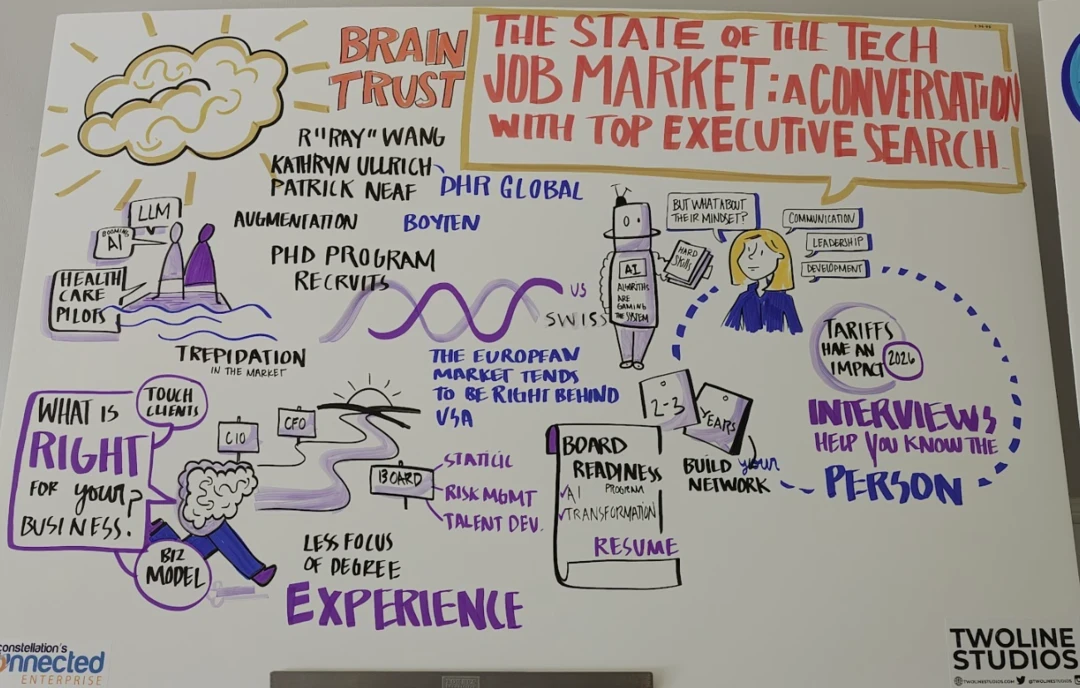 BRAIN
TRUST
THE STATE OF THE TECH
JOB MARKET: A CONVERSATION
WITH TOP EXECUTIVE SEARCH
R "RAY" WANG
KATHRYN ULLRICH
PATRICK NEAF
DHR GLOBAL
BOYTEN
LLM
BOOMING
AI
HEALTH
CARE
PILOTS
AUGMENTATION
PHD PROGRAM
RECRUITS
TREPIDATION
IN THE MARKET
US
SWISS
THE EUROPEAN
MARKET TENDS
TO BE RIGHT BEHIND
USA
AI
ALGORITHS
ARE
GAMING
THE SYSTEM
HARD
SKILLS
BUT WHAT ABOUT
THEIR MINDSET?
COMMUNICATION
LEADERSHIP
DEVELOPMENT
TARIFFS
HAE AN
IMPACT
2026
INTERVIEWS
HELP YOU KNOW THE
PERSON
WHAT IS
RIGHT
FOR your?
BUSINESS!
TOUCH
CLIENTS
BIZ
MODEL
CIO
CFO
BOARD
RISK MGMT
TALENT DEV.
LESS FOCUS
OF DEGREE
EXPERIENCE
BOARD
READINESS
PROGRAM
AI
TRANSFORMATION
RESUME
2-3
YEARS
BUILD your
NETWORK
constellation's
connected
ENTERPRISE
TWOLINE
STUDIOS
TWOLINESTUDIOS.COM @TWOLINESTUDIOS